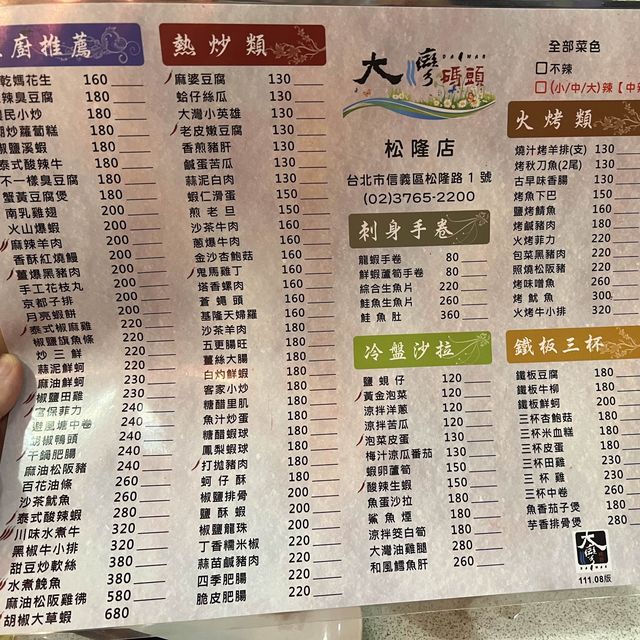 廚推薦
乾媽花生 160
辣臭豆腐 180
民小炒 180
炒蘿蔔糕 180
椒鹽溪蝦 180
泰式酸辣牛 180
不一樣臭豆腐 180
蟹黃豆腐煲 180
南乳雞翅 200
火山爆蝦 200
麻辣羊肉 200
香酥紅燒鰻 200
薑爆黑豬肉 200
手工花枝丸 200
京都子排 200
月亮蝦餅 200
泰式椒麻雞 220
椒鹽旗魚條 220
炒三鮮 220
蒜泥鮮蚵 220
麻油鮮蚵 220
椒鹽田雞 240
宮保菲力 240
避風塘中卷 240
胡椒鴨頭 240
干鍋肥腸 240
麻油松阪豬 240
百花油條 260
沙茶魷魚 260
泰式酸辣蝦 280
川味水煮牛 320
黑椒牛小排 320
甜豆炒軟絲 380
水煮鮸魚 380
麻油松阪雞彿 580
胡椒大草蝦 680
熱炒類
麻婆豆腐 130
蛤仔絲瓜 130
大灣小英雄 130
老皮嫩豆腐 130
香煎豬肝 130
鹹蛋苦瓜 130
蒜泥白肉 130
蝦仁滑蛋 150
煎老旦 150
沙茶牛肉 160
蔥爆牛肉 160
金沙杏鮑菇 160
鬼馬雞丁 160
塔香螺肉 160
蒼蠅頭 160
基隆天婦羅 160
沙茶羊肉 160
五更腸旺 180
薑絲大腸 180
白灼鮮蝦 180
客家小炒 180
糖醋里肌 180
魚汁炒蛋 180
糖醋蝦球 180
鳳梨蝦球 180
打拋豬肉 180
蚵仔酥 200
椒鹽排骨 200
鹽酥蝦 200
椒鹽龍珠 200
丁香糯米椒 220
蒜苗鹹豬肉 220
四季肥腸 220
脆皮肥腸 220
大灣碼頭
DAWAN
松隆店
台北市信義區松隆路1號
(02)3765-2200
刺身手卷
龍蝦手卷 80
鮮蝦蘆筍手卷 80
綜合生魚片 220
鮭魚生魚片 260
鮭魚肚 360
冷盤沙拉
鹽蜆仔 120
黃金泡菜 120
涼拌洋蔥 120
涼拌苦瓜 120
泡菜皮蛋 130
梅汁涼瓜番茄 130
蝦卵蘆筍 150
酸辣生蝦 150
魚蛋沙拉 180
鯊魚煙 180
涼拌筊白筍 180
大灣油雞腿 280
和風鱈魚肝 260
全部菜色
□不辣
□(小/中/大)辣【中辣
火烤類
燒汁烤羊排(支) 130
烤秋刀魚(2尾) 130
古早味香腸 130
烤魚下巴 150
鹽烤鯖魚 160
烤鹹豬肉 220
火烤菲力 220
包菜黑豬肉 220
照燒松阪豬 220
烤味噌魚 260
烤魷魚 300
火烤牛小排 320
鐵板三杯
鐵板豆腐 180
鐵板牛柳 180
鐵板鮮蚵 200
三杯杏鮑菇 180
三杯米血糕 180
三杯皮蛋 180
三杯田雞 230
三杯雞 230
三杯中卷 260
魚香茄子煲 180
芋香排骨煲 280
大灣
111.08版